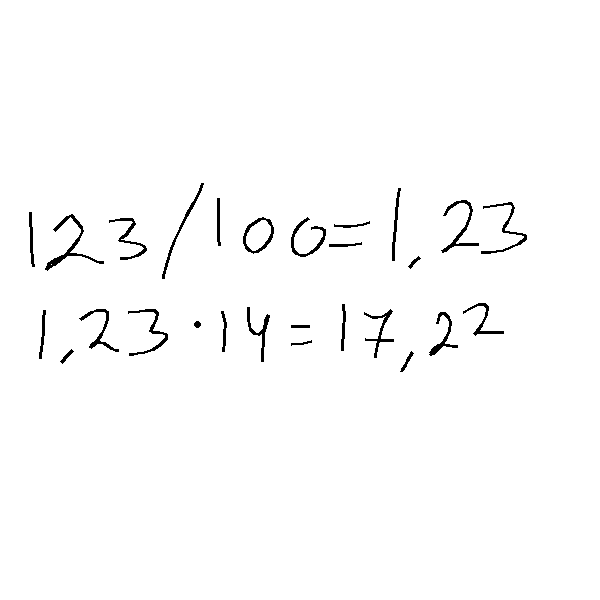 123/100=1,23
1,23·14=17,22